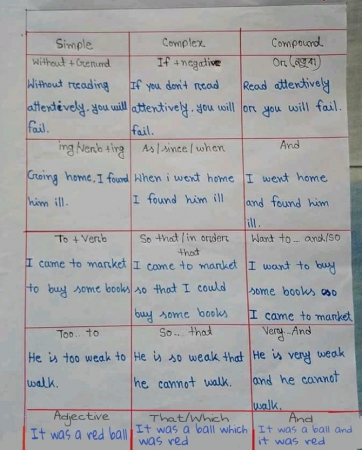 Simple Complex Compound
Without + Gerund If + negative Or (নতুবা)
Without reading If you don't read Read attentively
attentively, you will attentively, you will or you will fail.
fail. fail.
ing/Verb +ing As/since/when And
Going home, I found When i went home I went home
him ill. I found him ill and found him
ill.
To + Verb So that/in order Want to... and/so
that
I came to market I came to market I want to buy
to buy some books so that I could some books so
buy some books I came to market
Too... to So... that Very...And
He is too weak to He is so weak that He is very weak
walk. he cannot walk. and he cannot
walk.
Adjective That/Which And
It was a red ball It was a ball which It was a ball and
was red it was red